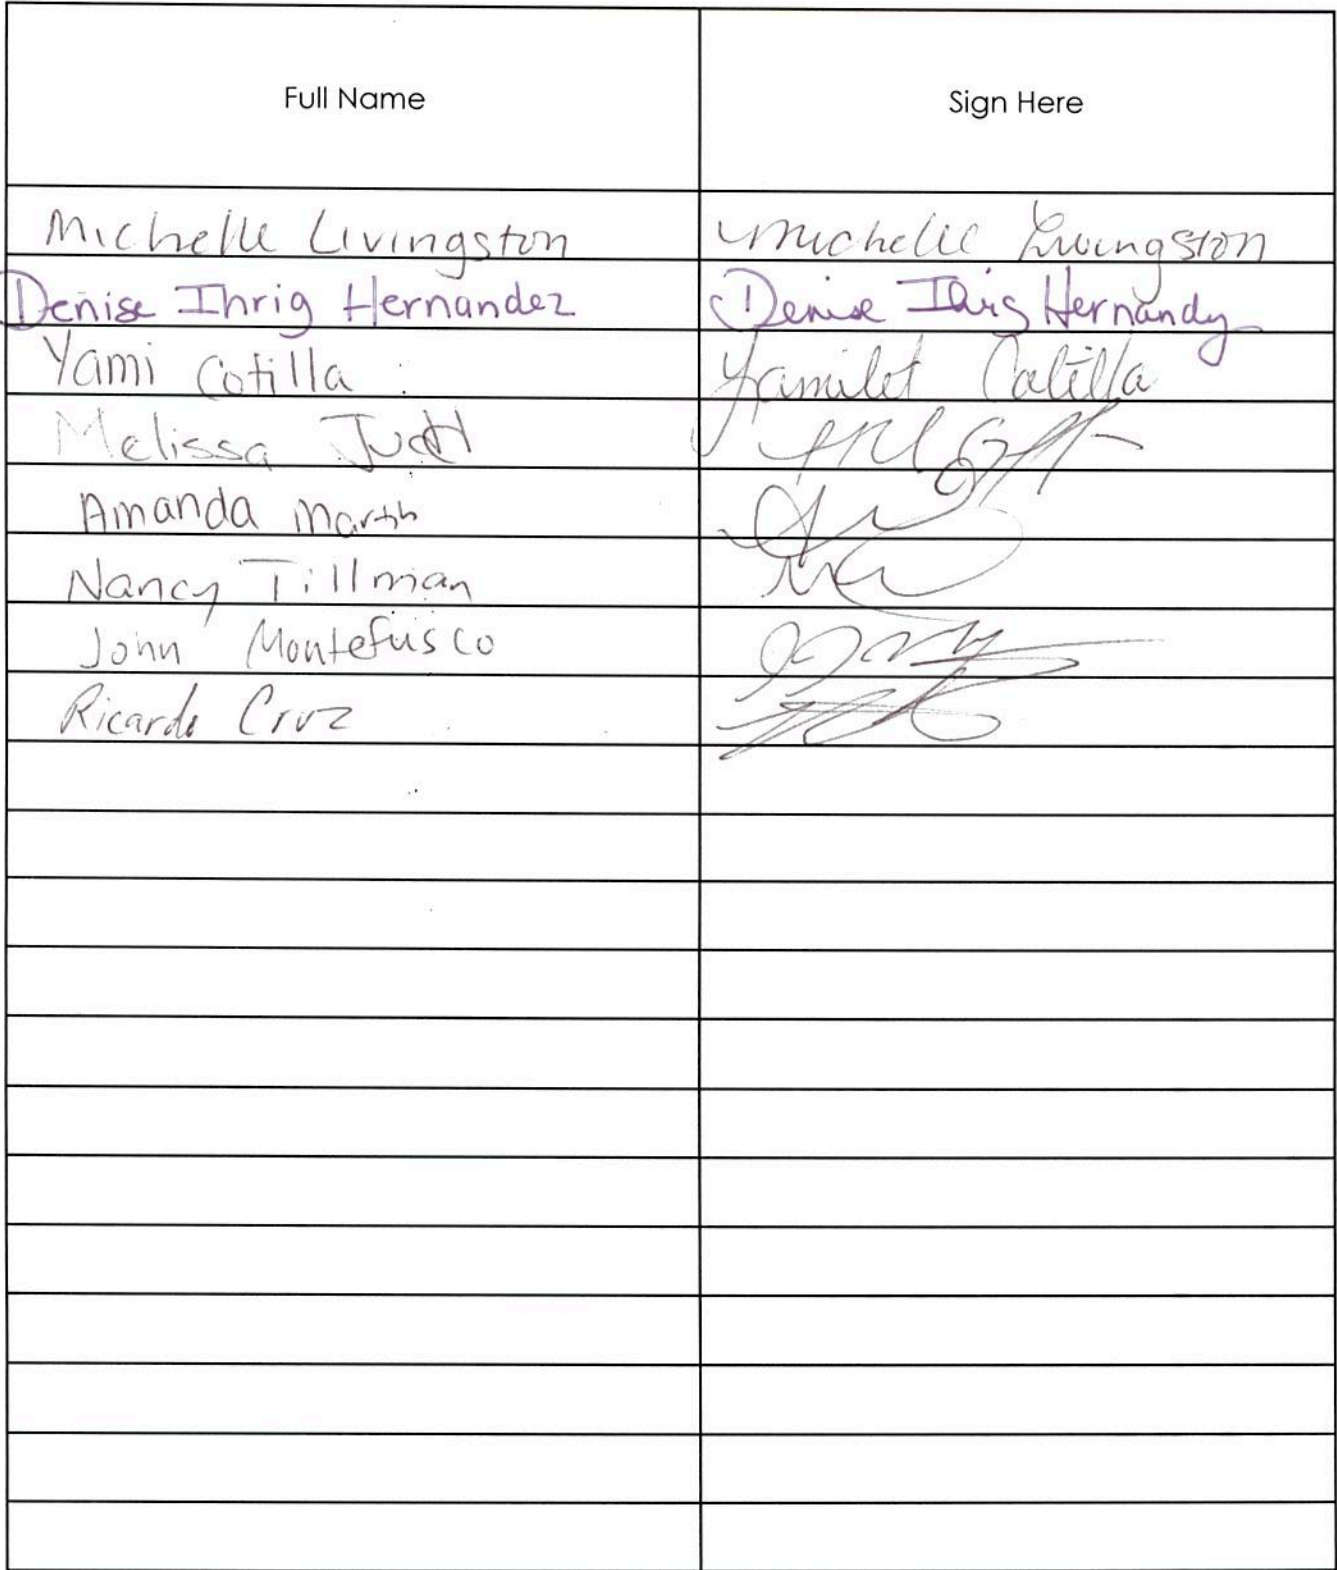 Full Name Sign Here
Michelle Livingston Michelle Livingston
Denise Ihrig Hernandez Denise Ihrig Hernandez
Yami Cotilla Yamilet Cotilla
Melissa Judd
Amanda Martin
Nancy Tillman
John Montefusco
Ricardo Cruz